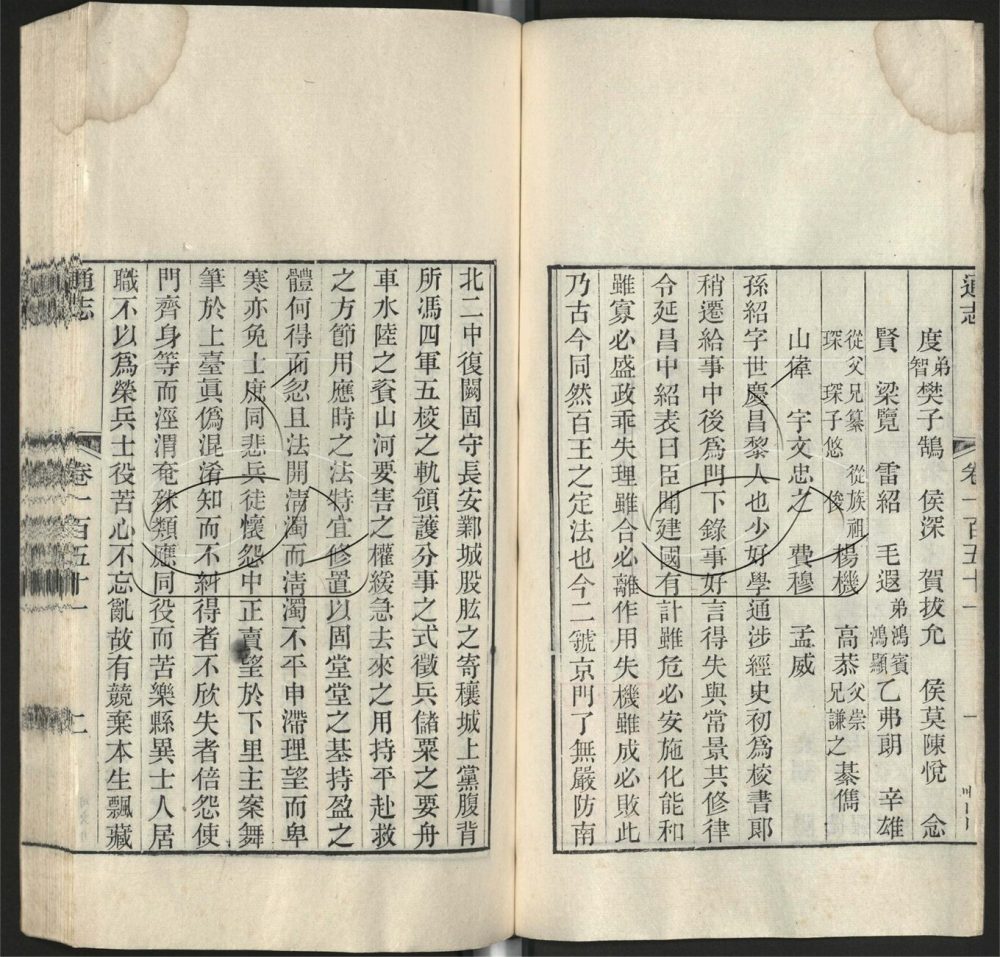 通志
卷一百五十一
一
度弟智樊子鵠 侯深 賀拔允 侯莫陳悅 念
賢 梁覽 雷紹 毛遐弟鴻賓鴻顯乙弗朗 辛雄
從父兄纂 從族祖琛 琛子悠 俊楊機 高恭之父崇兄謙之綦儁
山偉 宇文忠之 費穆 孟威
孫紹字世慶昌黎人也少好學通涉經史初為校書郎
稍遷給事中後為門下錄事好言得失與常景共修律
令延昌中紹表曰臣聞建國有計雖危必安施化能和
雖寡必盛政乖失理雖合必離作用失機雖成必敗此
乃古今同然百王之定法也今二虢京門了無嚴防南
北二中復闕固守長安鄴城股肱之寄穰城上黨腹背
所馮四軍五校之軌領護分事之式徵兵儲粟之要舟
車水陸之資山河要害之權緩急去來之用持平赴救
之方節用應時之法特宜修置以固堂堂之基持盈之
體何得而忽且法開清濁而清濁不平申滯理望而卑
寒亦免士庶同悲兵徒懷怨中正賣望於下里主案舞
筆於上臺真偽混淆知而不糾得者不欣失者倍怨使
門齊身等而涇渭奄殊類應同役而苦樂縣異士人居
職不以為榮兵士役苦心不忘亂故有競棄本生飄藏
通志
卷一百五十一
二